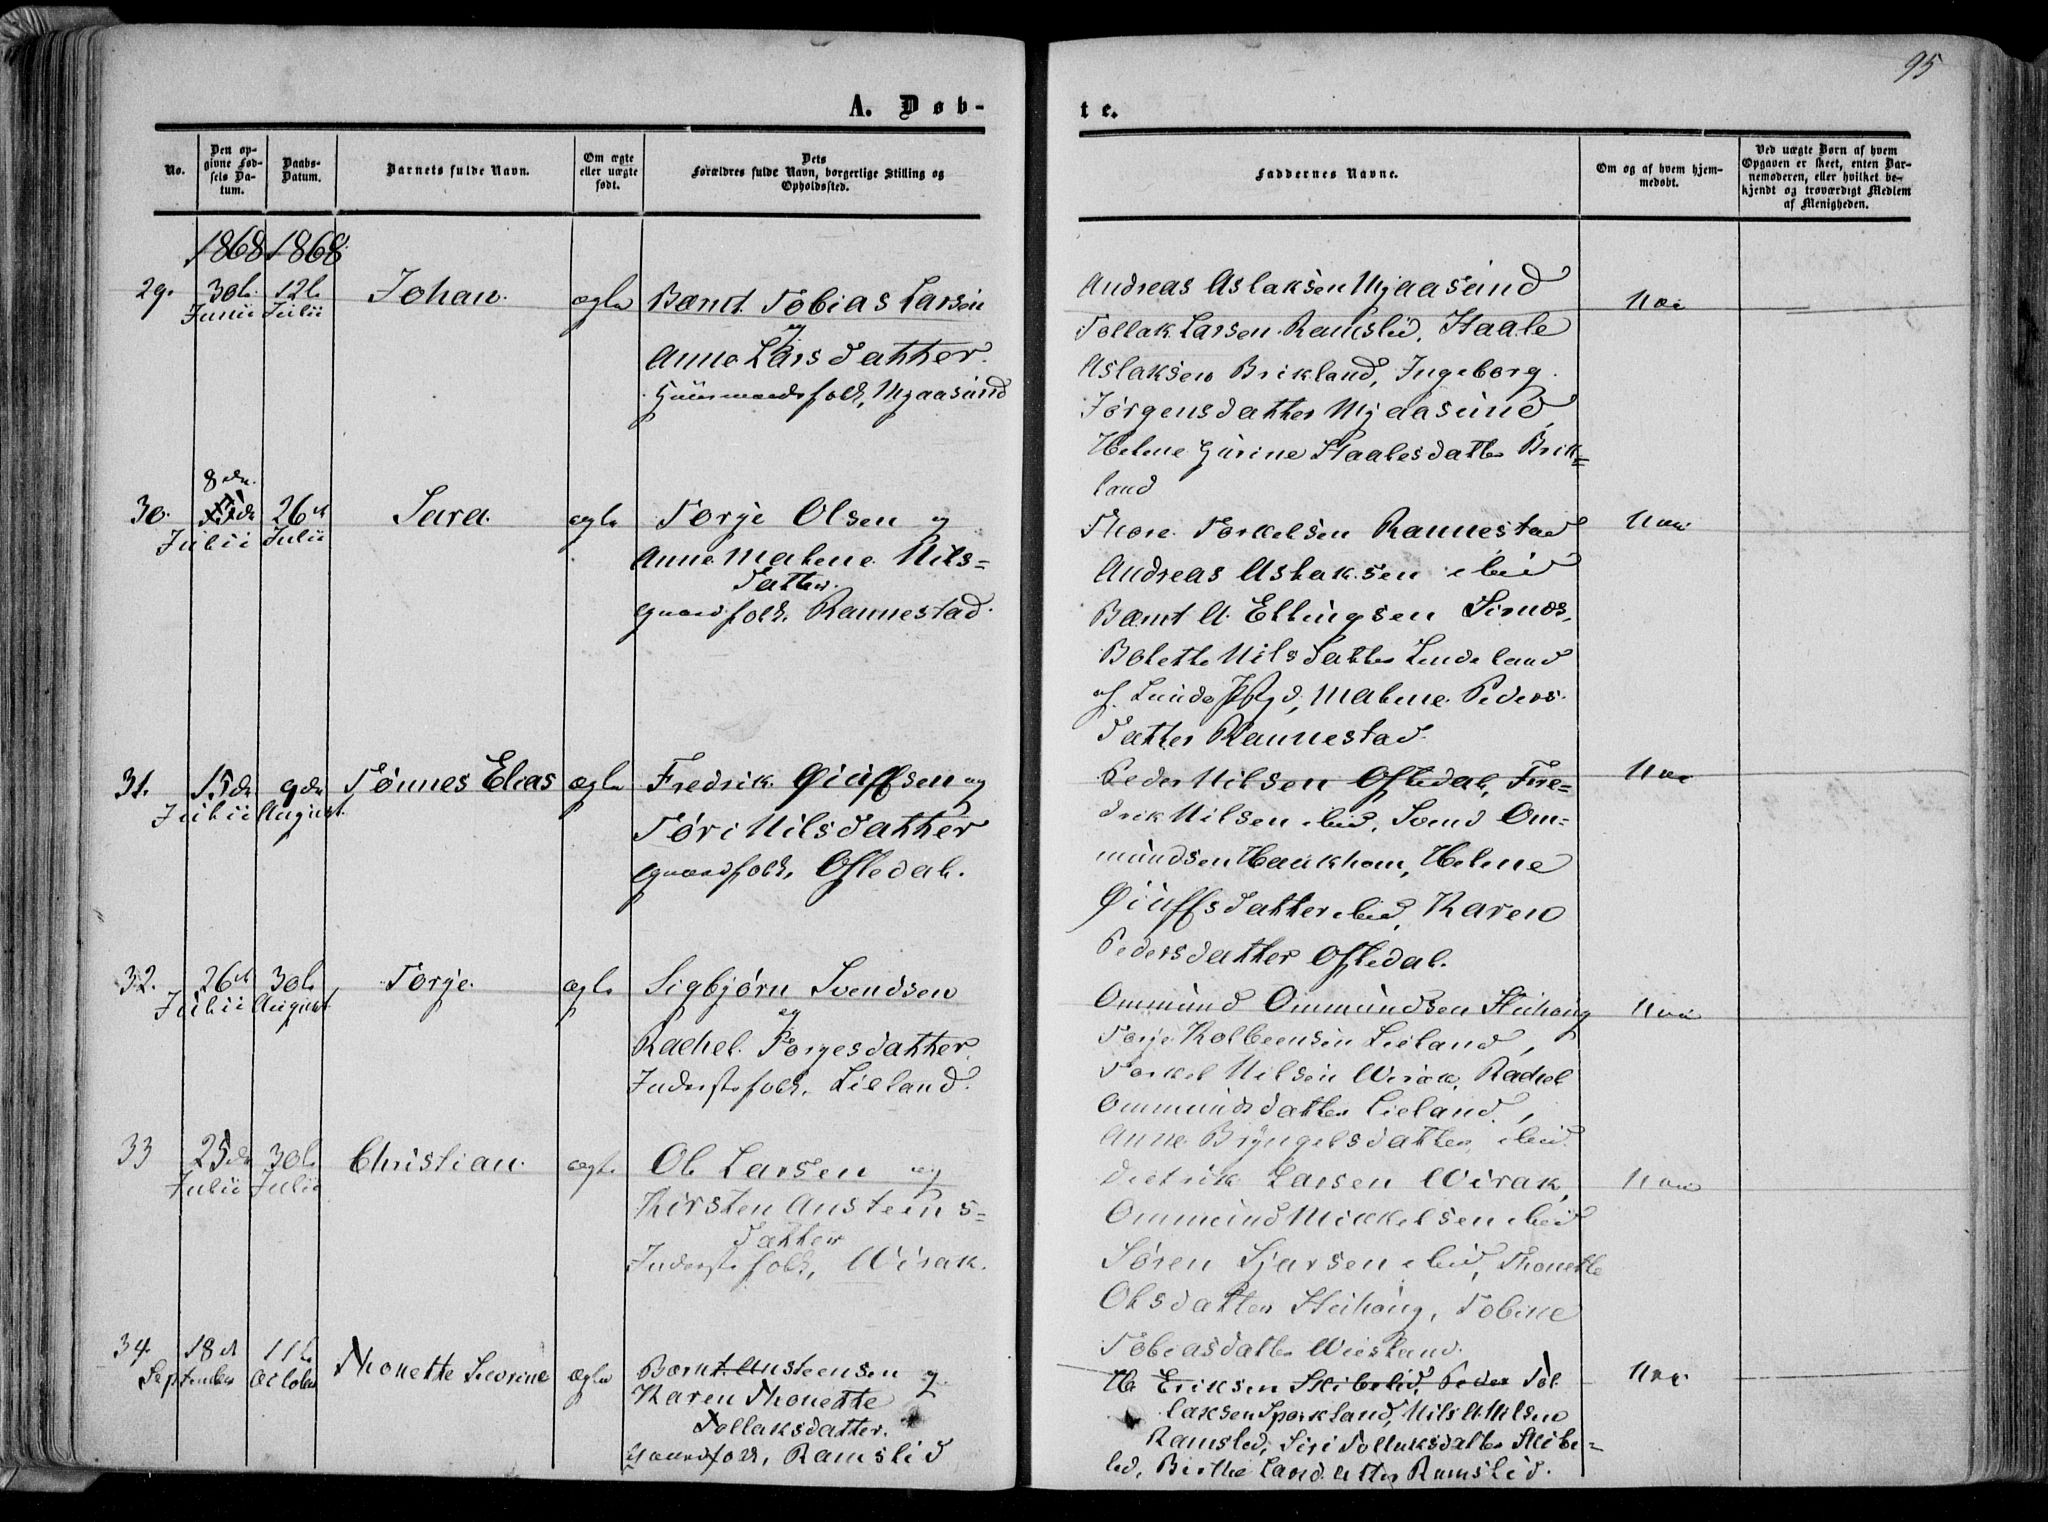 95
A. Døb-
te.
No.
Den op-
givne Fød-
sels Da-
tum.
Daabs-
Datum.
Barnets fulde Navn.
Om ægte
eller uægte
født.
Dets
Forældres fulde Navn, borgerlige Stilling og
Opholdssted.
Faddernes Navne.
Om og af hvem hjem-
medøbt.
Ved uægte Børn af hvem
Opgaven er skeet, enten Bar-
nemoderen, eller hvilket be-
kjendt og troværdigt Medlem
af Menigheden.
1868 1868
29. 30te 12te Johan. ægte Bernt Tobias Larsen
Junii Julii og
Anne Larsdatter.
Huusmandsfolk, Mjaasund
Andreas Aslaksen Mjaasund
Tollak Larsen Ramslid, Staale
Aslaksen Brikland, Ingeborg
Jørgensdatter Mjaasund
Helene Gurine Staalesdatter Brik=
land
Nei
8de
30. 26de Sara. ægte Torje Olsen og
Julii Julii
Anne Malene Nils=
datter
Gaardfolk, Rannestad.
Thore Torkelsen Rannestad
Andreas Aslaksen ibid
Bernt A. Ellingsen Sirnes,
Bolette Nilsdatter Lindeland
af Lunde Pgd, Malene Peders-
datter Rannestad.
Nei
31. 15de 9de Tønnes Elias ægte Fredrik Øiufsen og
Julii August
Tøri Nilsdatter
Gaardfolk, Ofstedal.
Peder Nilsen Ofstedal, Fre=
drik Nilsen ibid, Svend Om=
mundsen Haukhom, Helene
Øiuffsdatter ibid, Karen
Pedersdatter Ofstedal.
Nei
32. 26de 30te Torje. ægte Sigbjørn Svendsen
Julii August og
Rachel Torjesdatter
Inderstfolk, Lieland.
Ommund Ommundsen Steihoug
Torje Kolbeensen Lieland,
Torkel Nilsen Wirak, Rachel
Ommundsdatter Lieland,
Anne Bryngelsdatter ibid.
Nei
33 25de 30te Christian. ægte Ole Larsen og
Julii Julii
Kirsten Austeens=
datter
Inderstfolk, Wirak.
Diedrik Larsen Wirak,
Ommund Mikkelsen ibid
Søren Sjursen ibid, Thonette
Olsdatter Steihoug, Tobine
Tobiasdatter
Nei
34. 18de 11te Thonette Severine ægte Bernt Austeensen og
September October
Karen Thonette
Tollaksdatter.
Gaardfolk, Ramslid
Ole Eriksen Skibelid, Peder Tol-
laksen Sporkland, Nils A. Nilsen
Ramslid, Siri Tollaksdatter Skibe=
lid, Birthe Larsdatter Ramslid.
Nei